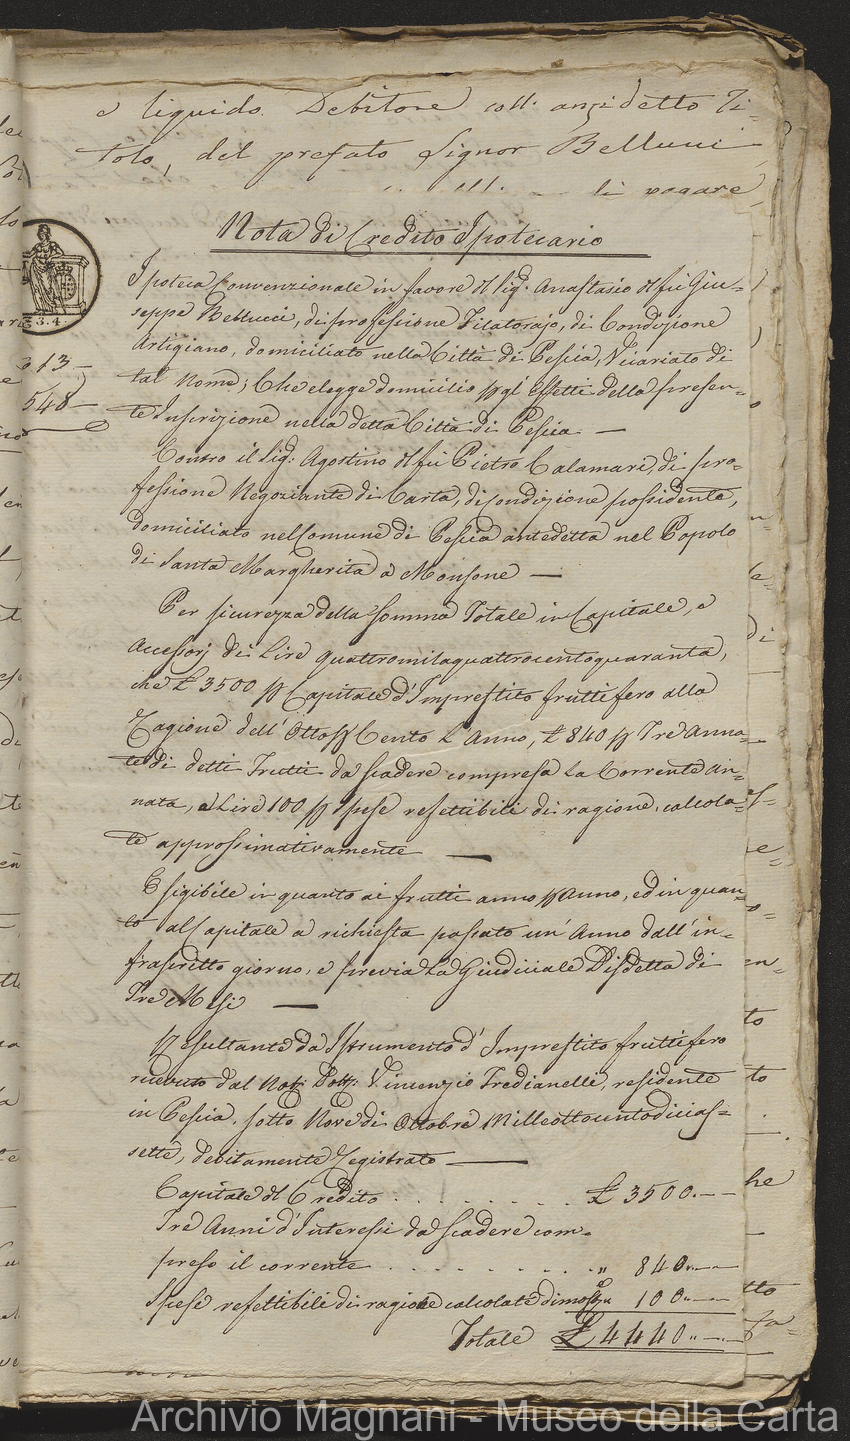 e liquido Debitore coll' anzidetto Ti=
tolo, del prefato Signor Bellucci
di pagare
Nota di Credito Ipotecario
Ipoteca Convenzionale in favore del Sig.r Anastasio del fu Giu=
seppe Bellucci, di professione Filatorajo, di Condizione
Artigiano, domiciliato nella Città di Pescia, Vicariato di
tal Nome; Che elegge domicilio p gl' effetti della presen=
te Inscrizione nella detta Città di Pescia —
Contro il Sig.r Agostino del fu Pietro Calamari, di pro=
fessione Negoziante di Carta, di condizione possidente,
domiciliato nel Comune di Pescia antedetta nel Popolo
di Santa Margherita a Monsone —
Per sicurezza della somma Totale in Capitale, e
Accessorj di Lire quattromilaquattrocentoquaranta,
che £ 3500 p Capitale d'Imprestito fruttifero alla
Ragione dell' Otto p Cento L'Anno, £ 840 p Tre Anna=
te di detti Frutti da scadere compresa la Corrente an=
nata, e Lire 100 p spese refettibili di ragione, calcola=
te approssimativamente —
Esigibile in quanto ai frutti anno p Anno, ed in quan=
to al Capitale a richiesta passato un' Anno dall' in=
frascritto giorno, e previa la Giudiciale Disdetta di
Tre Mesi —
Resultante da Istrumento d' Imprestito fruttifero
ricevuto dal Not: Dott: Vincenzio Fredianelli, residente
in Pescia, sotto Nove di Ottobre Milleottocentodicias=
sette, debitamente Registrato —
Capitale del Credito . . . . . . . £ 3500.—
Tre Anni d'Interessi da scadere com=
preso il corrente . . . . . . . . " 840 —
Spese refettibili di ragione calcolate 100 —
Totale £ 4440 —
3.4
313 —
548 —
Archivio Magnani - Museo della Carta